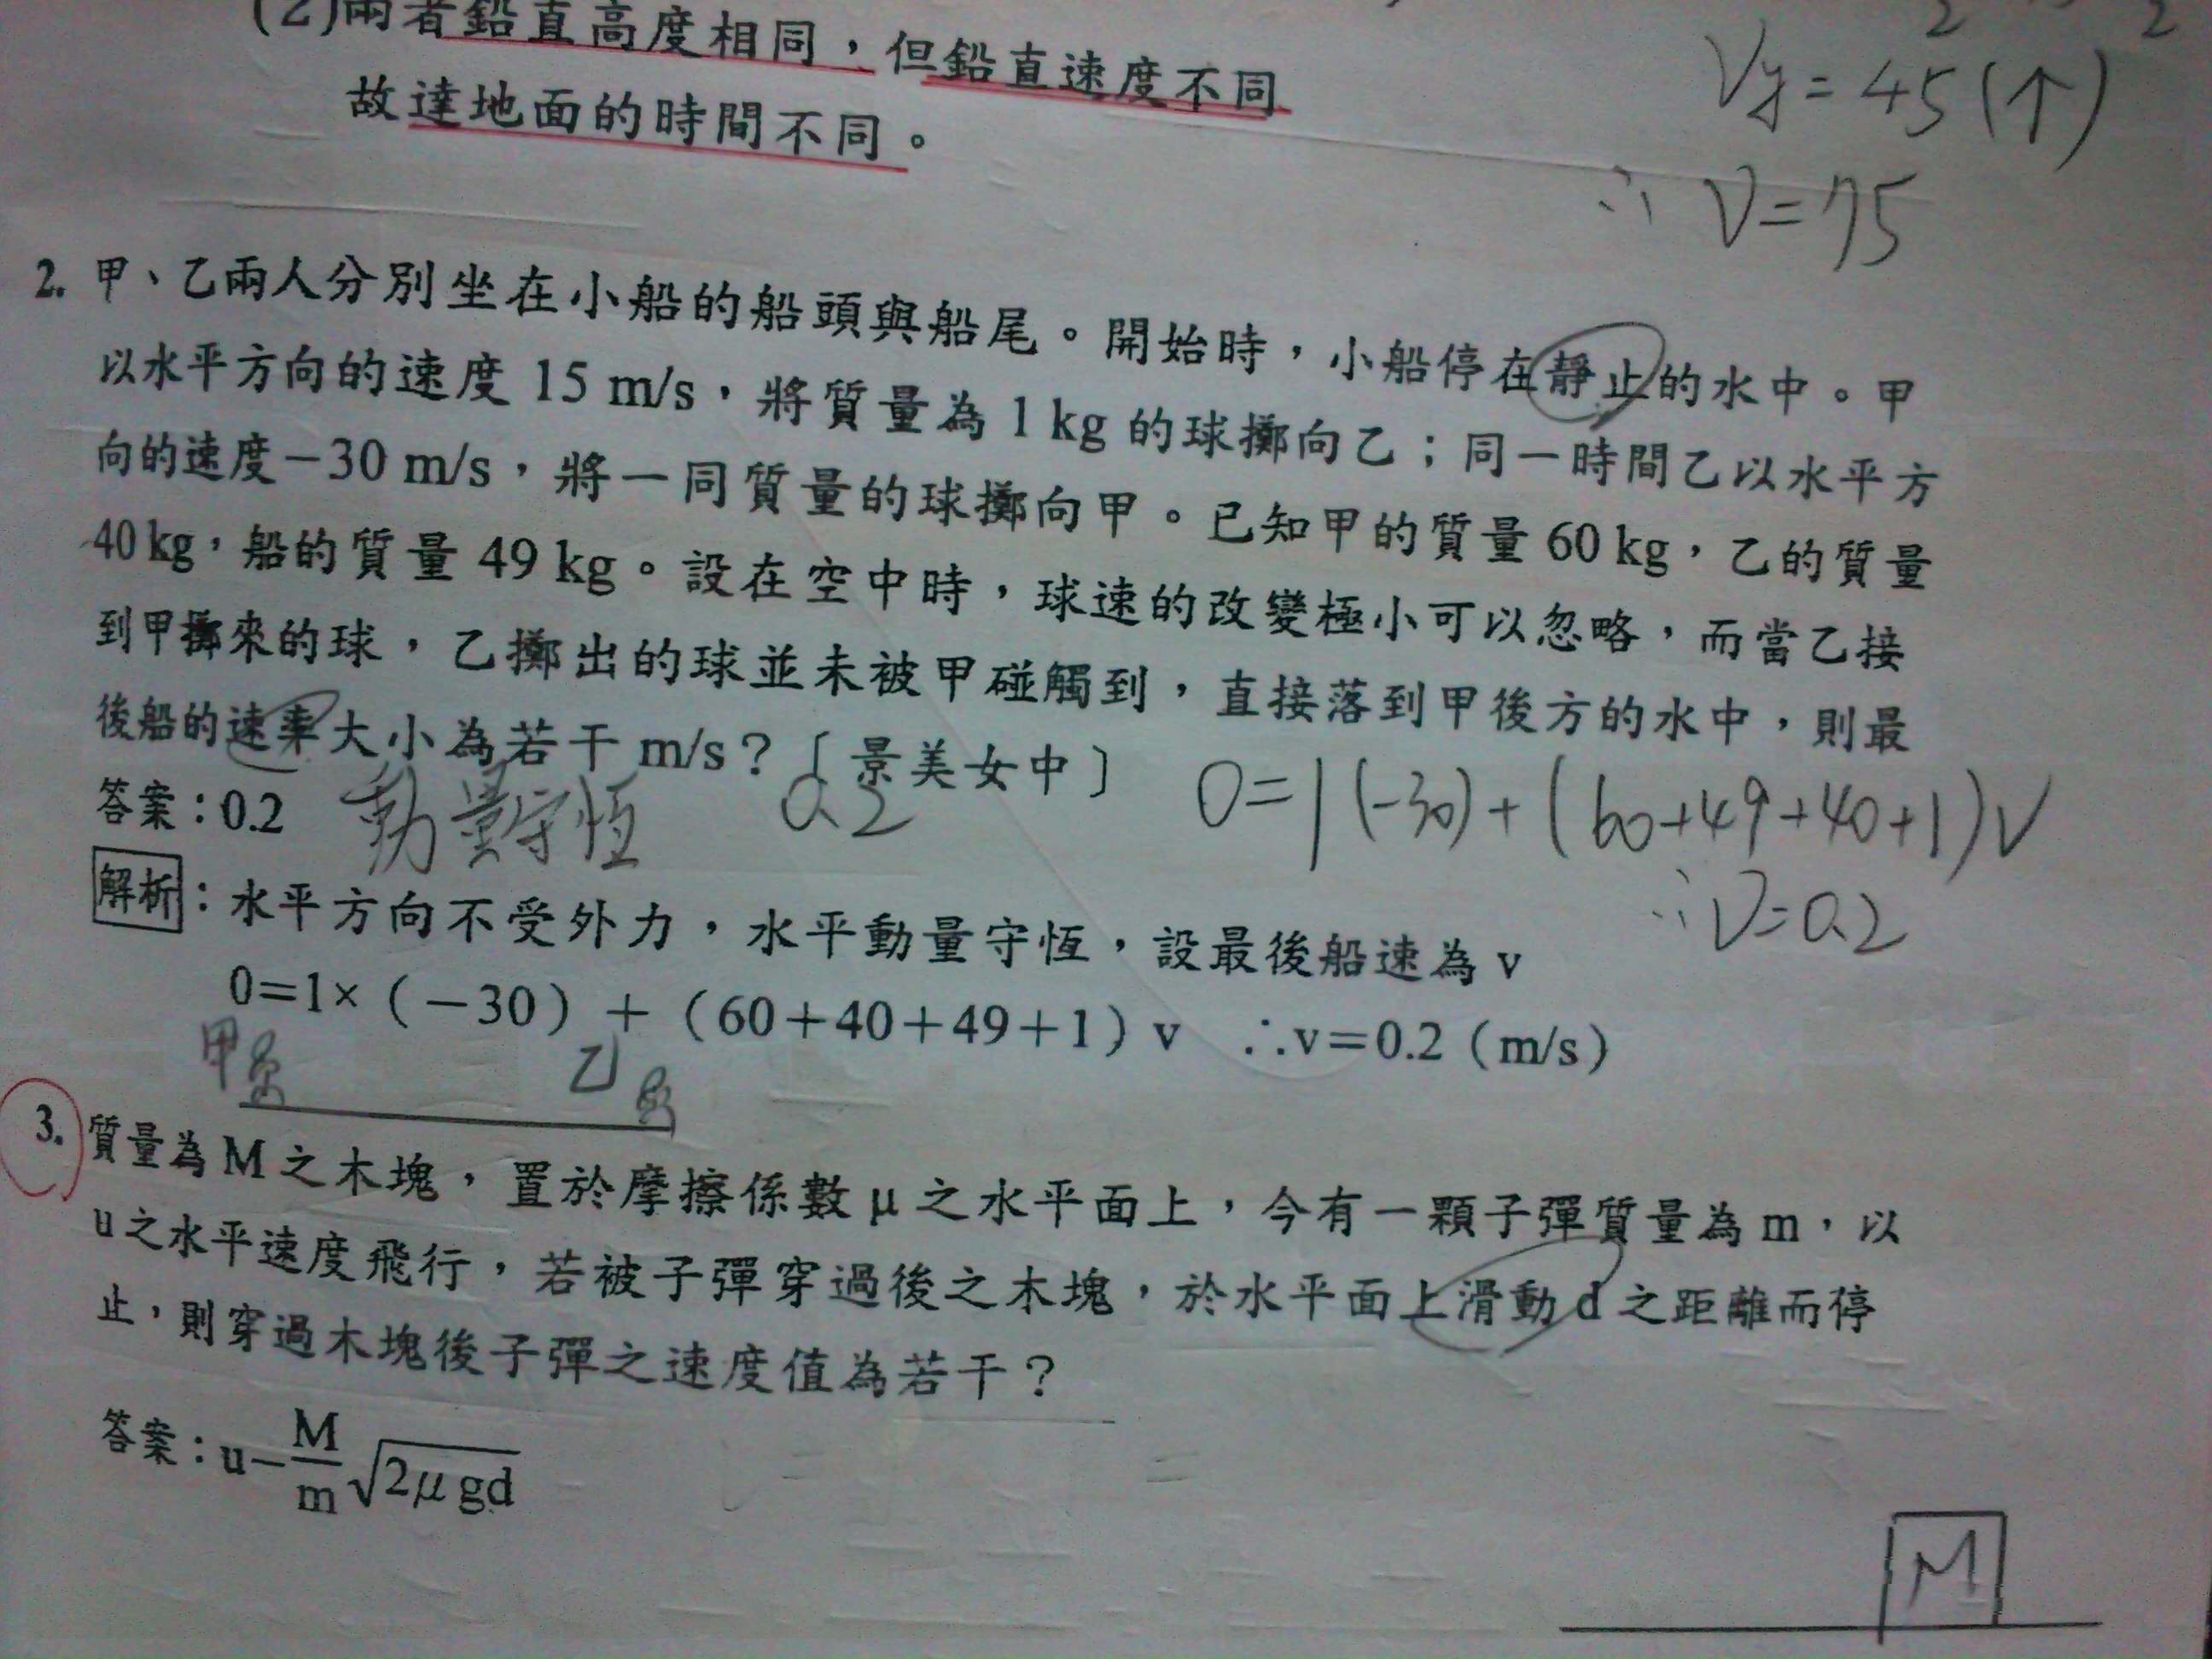 (2)兩者鉛直高度相同，但鉛直速度不同
故達地面的時間不同。
2 2
Vy=45(↑)
∴ V=75
2. 甲、乙兩人分別坐在小船的船頭與船尾。開始時，小船停在靜止的水中。甲
以水平方向的速度 15 m/s，將質量為 1 kg 的球擲向乙；同一時間乙以水平方
向的速度－30 m/s，將一同質量的球擲向甲。已知甲的質量 60 kg，乙的質量
40 kg，船的質量 49 kg。設在空中時，球速的改變極小可以忽略，而當乙接
到甲擲來的球，乙擲出的球並未被甲碰觸到，直接落到甲後方的水中，則最
後船的速率大小為若干 m/s？〔景美女中〕
答案：0.2
動量守恆 0.2
0=1(-30)+(60+49+40+1)V
∴V=0.2
解析：水平方向不受外力，水平動量守恆，設最後船速為 v
0=1×（－30）＋（60＋40＋49＋1）v ∴v=0.2（m/s）
甲 乙
3. 質量為 M 之木塊，置於摩擦係數 μ 之水平面上，今有一顆子彈質量為 m，以
u 之水平速度飛行，若被子彈穿過後之木塊，於水平面上滑動 d 之距離而停
止，則穿過木塊後子彈之速度值為若干？
答案：u－M/m√2μgd
M